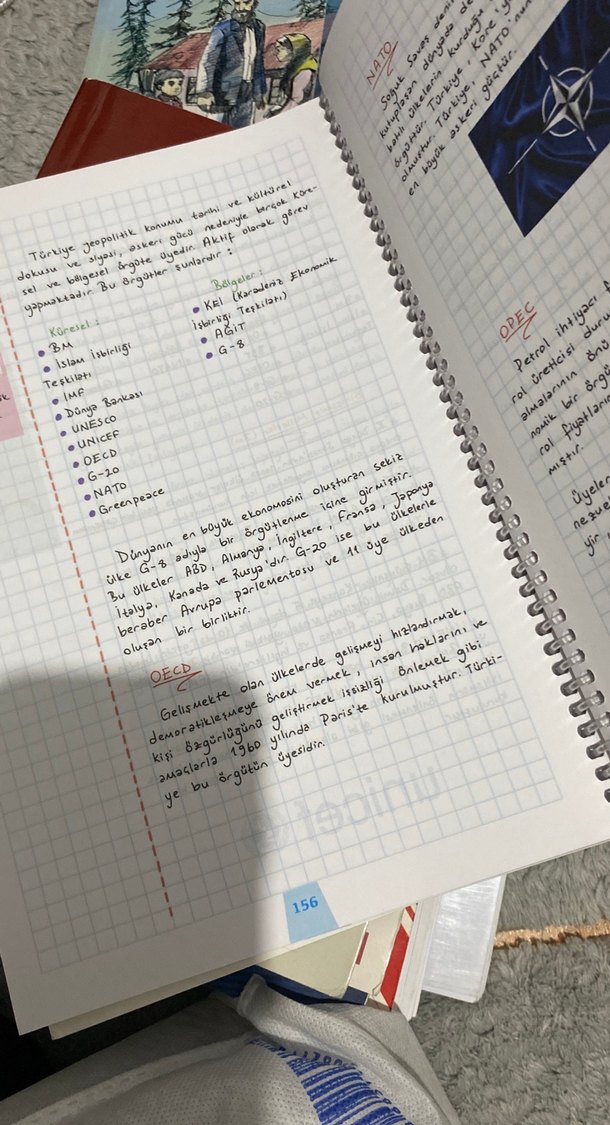 Türkiye geopolitik konumu tarihi ve kültürel
dokusu ve siyasi, askeri gücü nedeniyle birçok küre-
sel ve bölgesel örgüte üyedir. Aktif olarak görev
yapmaktadır. Bu örgütler şunlardır :
Küresel :
BM
İslam İsbirliği
Teşkilatı
IMF
Dünya Bankası
UNESCO
UNICEF
OECD
G-20
NATO
Greenpeace
Bölgeler :
KEİ (Karadeniz Ekonomik
İşbirliği Teşkilatı)
AGİT
G-8
Dünyanın en büyük ekonomosini oluşturan sekiz
ülke G-8 adıyla bir örgütlenme içine girmiştir.
Bu ülkeler ABD, Almanya, İngiltere, Fransa, Japonya
İtalya, Kanada ve Rusya'dır. G-20 ise bu ülkelerle
beraber Avrupa parlementosu ve 11 üye ülkeden
oluşan bir birliktir.
OECD
Gelişmekte olan ülkelerde gelişmeyi hızlandırmak,
demoratikleşmeye önem vermek, insan haklarını ve
kişi özgürlüğünü geliştirmek işsizliği önlemek gibi
amaçlarla 1960 yılında Paris'te kurulmuştur. Türki-
ye bu örgütün üyesidir.
156
NATO
Soğuk Savaş
kutuplaşan dünyada
batılı ülkelerin kurduğu
örgüttür. Türkiye, Kore
olmuştur. Türkiye, NATO'nun
en büyük askeri gücüdür.
OPEC
Petrol ihtiyacı
rol üreticisi
almalarının
nomik bir
rol fiyatların
mıştır.
Üyeler